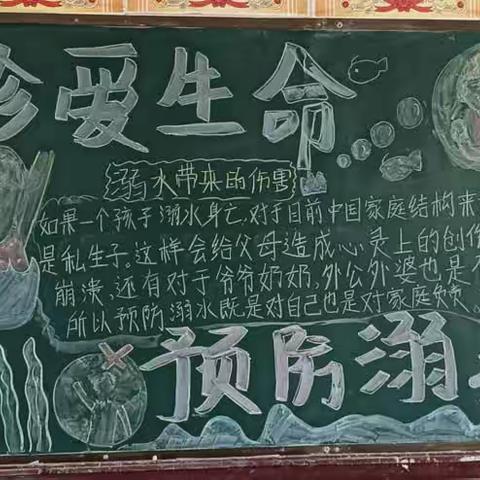 珍爱生命
溺水带来的伤害
如果一个孩子溺水身亡,对于目前中国家庭结构来
是私生子。这样会给父母造成心灵上的创伤
崩溃,还有对于爷爷奶奶,外公外婆也是不
所以预防溺水既是对自己也是对家庭负责
预防溺